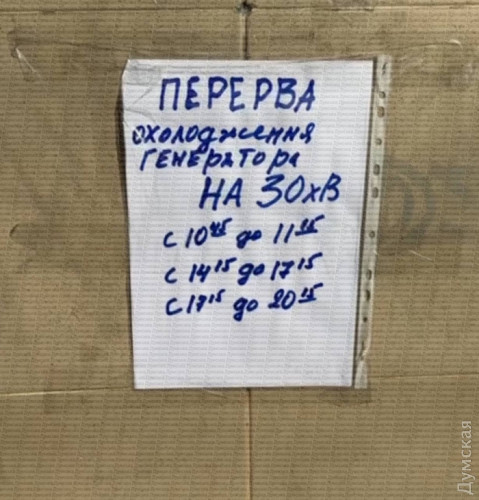 ПЕРЕРВА
охолодження
генератора
НА 30хв
с 10⁴⁵ до 11¹⁵
с 14¹⁵ до 17¹⁵
с 17¹⁵ до 20¹⁵
Думская